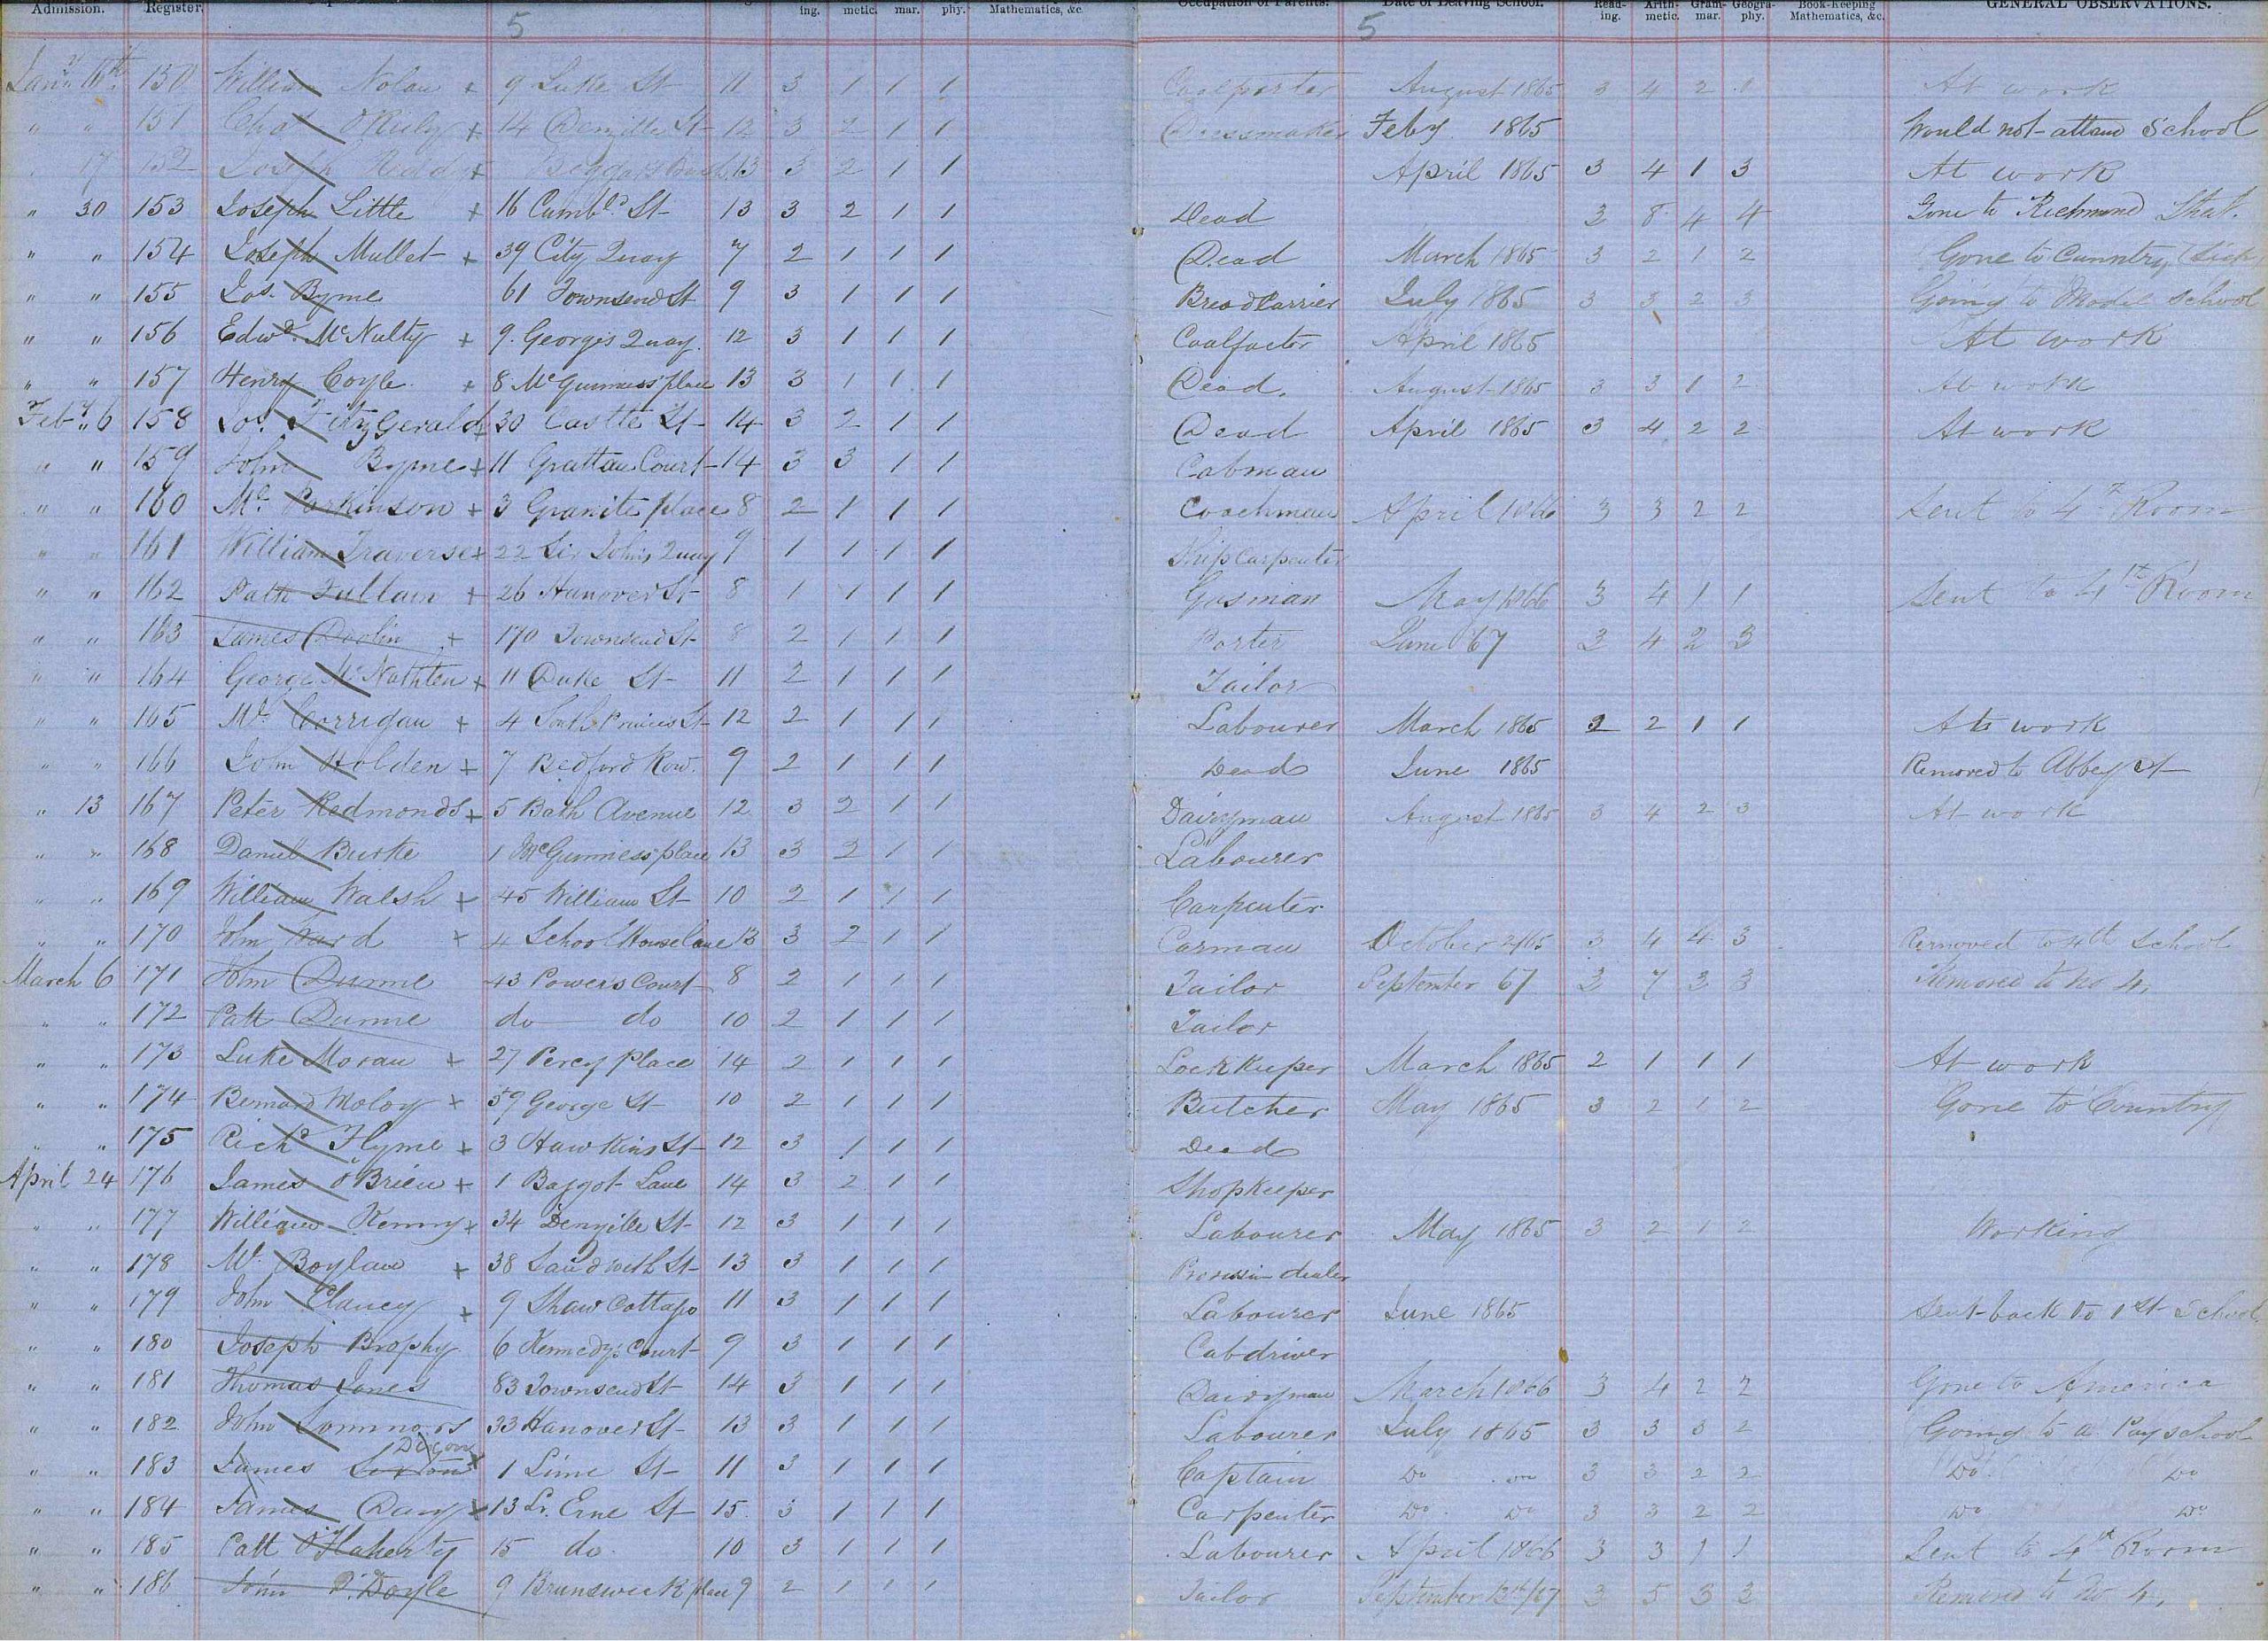 Admission. Register. ing. metic. mar. phy. Mathematics, &c. Occupation of Parents. Date of Leaving School. Read-ing. Arith-metic. Gram-mar. Geogra-phy. Book-Keeping Mathematics, &c. GENERAL OBSERVATIONS.
5 5
Jany 16th 150 William Nolan + 9 Luke St 11 3 1 1 1 Coalporter August 1865 3 4 2 1 At work
" " 151 Chas O'Reily + 14 Denzille St 12 3 2 1 1 Dressmaker Feby 1865 Would not attend School
" 17 152 Joseph + Beggars Bush 13 3 2 1 1 April 1865 3 4 1 3 At work
" 30 153 Joseph Little + 16 Cumbld St 13 3 2 1 1 Dead 3 8 4 4 Gone to Richmond Strt.
" " 154 Joseph Mullet + 39 City Quay 7 2 1 1 1 Dead March 1865 3 2 1 2 Gone to Cunntry (Sick)
" " 155 Jos. Byrne 61 Townsend St 9 3 1 1 1 Bread Carrier July 1865 3 3 2 3 Going to Model School
" " 156 Edwd. McNulty + 9. Georges Quay. 12 3 1 1 1 Coalfactor April 1865 At work
" " 157 Henry Coyle. + 8 McGuinness' place 13 3 1 1 1 Dead. August 1865 3 3 1 2 At work
Feby 6 158 Jos. FitzGerald + 30 Castle St 14 3 2 1 1 Dead April 1865 3 4 2 2 At work
" " 159 John Byrne + 11 Grattan Court 14 3 3 1 1 Cabman
" " 160 Ml Parkinson + 3 Granite place 8 2 1 1 1 Coachman April 1866 3 3 2 2 Sent to 4th Room
" " 161 William Traverse + 22 Sir John's Quay 9 1 1 1 1 Ship Carpenter
" " 162 Patk Fullam + 26 Hanover St 8 1 1 1 1 Gasman May 1866 3 4 1 1 Sent to 4th Room
" " 163 James Doolin + 170 Townsend St 8 2 1 1 1 Porter June 67 3 4 2 3
" " 164 George McNathten + 11 Duke St 11 2 1 1 1 Tailor
" " 165 Ml Corrigan + 4 South Princes St 12 2 1 1 1 Labourer March 1865 2 2 1 1 At work
" " 166 John Holden + 7 Bedford Row. 9 2 1 1 1 Dead June 1865 Removed to Abbey St
" 13 167 Peter Redmonds + 5 Bath Avenue 12 3 2 1 1 Dairyman August 1865 3 4 2 3 At work
" " 168 Daniel Burke 1 McGuinness' place 13 3 2 1 1 Labourer
" " 169 William Walsh + 45 William St 10 2 1 1 1 Carpenter
" " 170 John Ward + 4 School House Lane 13 3 2 1 1 Carman October 2/65 3 4 4 3 Removed to 4th School
March 6 171 John Dunne 43 Powers Court 8 2 1 1 1 Tailor September 67 3 7 3 3 Removed to no 4.
" " 172 Patt Dunne do do 10 2 1 1 1 Tailor
" " 173 Luke Moran + 27 Percy Place 14 2 1 1 1 Lock Keeper March 1865 2 1 1 1 At work
" " 174 Bernard Moloy + 59 George St 10 2 1 1 1 Butcher May 1865 3 2 1 2 Gone to Country
" " 175 Richd Flynne + 3 Hawkins St 12 3 1 1 1 Dead
April 24 176 James O'Brien + 1 Baggot Lane 14 3 2 1 1 Shopkeeper
" " 177 William Kenny + 34 Denzille St 12 3 1 1 1 Labourer May 1865 3 2 1 2 Working
" " 178 Ml Boylan + 38 Sandwith St 13 3 1 1 1 Provision dealer
" " 179 John Clancy + 9 Shaw Cottage 11 3 1 1 1 Labourer June 1865 Sent back to 1st School
" " 180 Joseph Brophy 6 Kennedy's Court 9 3 1 1 1 Cabdriver
" " 181 Thomas Jones 83 Townsend St 14 3 1 1 1 Dairyman March 1866 3 4 2 2 Gone to America
" " 182 John Somnors 33 Hanover St 13 3 1 1 1 Labourer July 1865 3 3 3 2 Going to a Pay School
" " 183 James Sexton + 1 Lime St 11 3 1 1 1 Captain Do Do 3 3 2 2 Do Do
" " 184 James Davy + 13 Lr. Erne St 15 3 1 1 1 Carpenter Do Do 3 3 2 2 Do Do
" " 185 Patt O'Flaherty 15 do. 10 3 1 1 1 Labourer April 1866 3 3 1 1 Sent to 4th Room
" " 186 John P. Doyle 9 Brunswick place 9 2 1 1 1 Tailor September 13th/67 3 5 3 3 Removed to No 4.